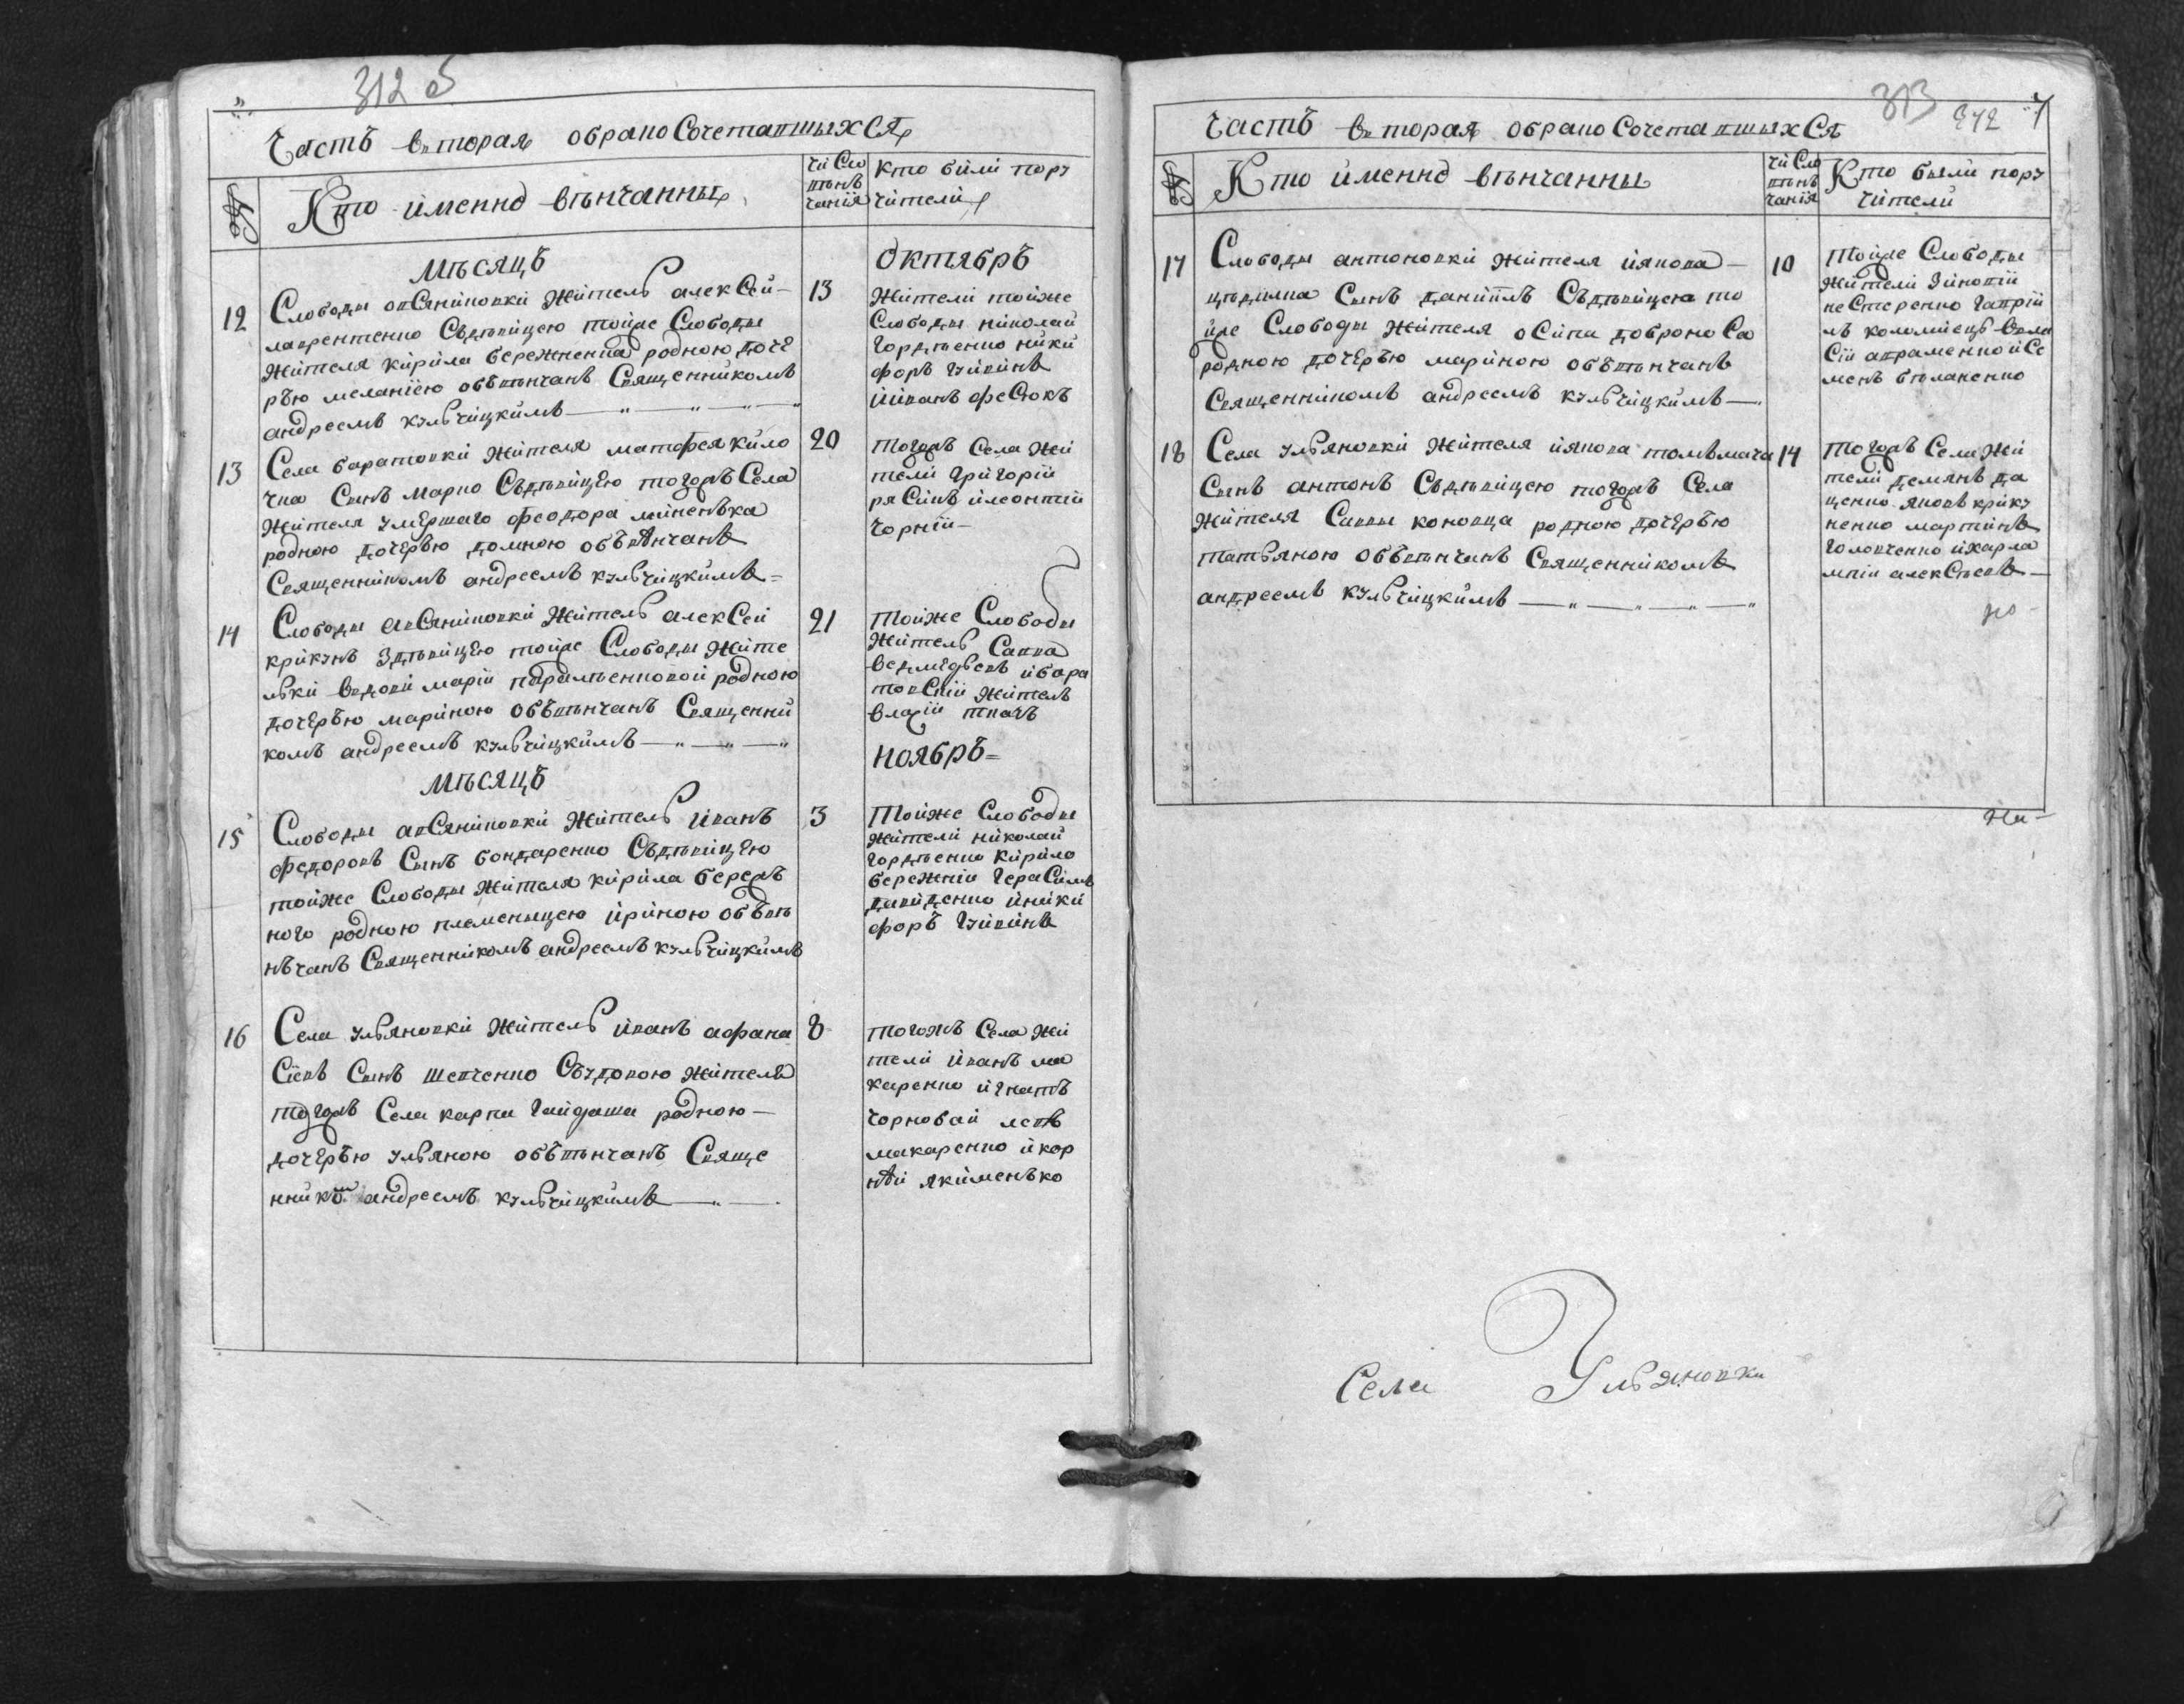 312 об
Часть вторая обракосочетавшыхся
№
Кто именно венчанны
число
венъ
чанїя
кто били пору
чители
Мѣсяцъ
Октябрь
12
Слободы овсяниковки житель алексей
лаврентенко Съдѣвицею тойже Слободы
жителя кирила бережненка родною доче
рью меланїею обвѣнчанъ Священникомъ
андреемъ кульчицкимъ
13
жители тойже
Слободы николай
гордѣенко ники
форъ
ииванъ фесюкъ
13
Села баратовки жителя матфея кило
чка Сынъ марко Съдѣвицею тогожъ Села
жителя умершаго феодора миненъка
родною дочерью домною обвѣнчанъ
Священникомъ андреемъ кульчицкимъ
20
тогожъ Села жи
тели григорїй
илеонтїй
чорнїй
14
Слободы авсяниковки житель алексей
крикунъ здѣвицею тойже Слободы жите
льки вдови марїи родною
дочерью мариною обвѣнчанъ Священни
комъ андреемъ кульчицкимъ
21
тойже Слободы
житель Савва
ведмедьевъ ибара
товскїй житель
власїй ткачъ
Мѣсяцъ
Ноябрь
15
Слободы авсяниковки житель иванъ
федоровъ Сынъ бондаренко Съдѣвицею
тойже Слободы жителя кирила береж
ного родною племеницею ириною обвѣ
нчанъ Священникомъ андреемъ кульчицкимъ
3
тойже Слободы
жители николай
гордѣенко кирило
бережнїй герасимъ
давиденко иники
форъ
16
Села ульяновки житель иванъ афана
сїевъ Сынъ шевченко Съудовою жителя
тогожъ Села карпа гайдаша родною
дочерью ульяною обвѣнчанъ Свяще
нникомъ андреемъ кульчицкимъ
8
тогожъ Села жи
тели иванъ ма
каренко игнатъ
чорновай левъ
макаренко икор
нѣй якименъко
313
7
Часть вторая обракосочетавшыхся
№
Кто именно венчанны
число
венъ
чанїя
Кто были пору
чители
17
Слободы антоновки жителя иякова
Сынъ данїилъ Съдѣвицею то
йже Слободы жителя осипа
родною дочерью мариною обвѣнчанъ
Священникомъ андреемъ кульчицкимъ
10
тойже Слободы
жители зиновїй
нестеренко гаврїи
лъ коломиецъ
авраменко исе
менъ
18
Села ульяновки жителя иякова толъмача
Сынъ антонъ Съдѣвицею тогожъ Села
жителя Саввы коновца родною дочерью
татьяною обвѣнчанъ Священникомъ
андреемъ кульчицкимъ
14
тогожъ Села жи
тели демянъ да
ценко яковъ крику
ненко мартинъ
головченко ихарла
мпїй алексѣевъ
Села Ульяновки